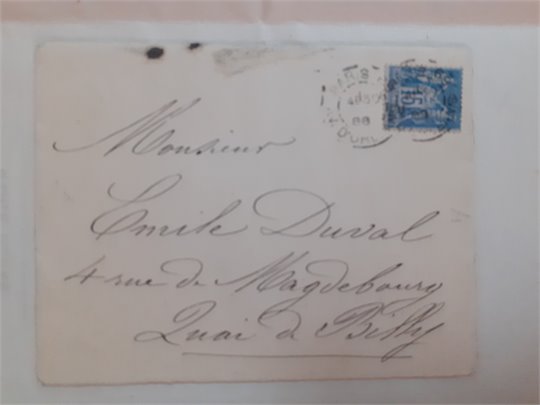 Monsieur
Emile Duval
4 rue de Magdebourg
Quai de Billy
PARIS
88
15